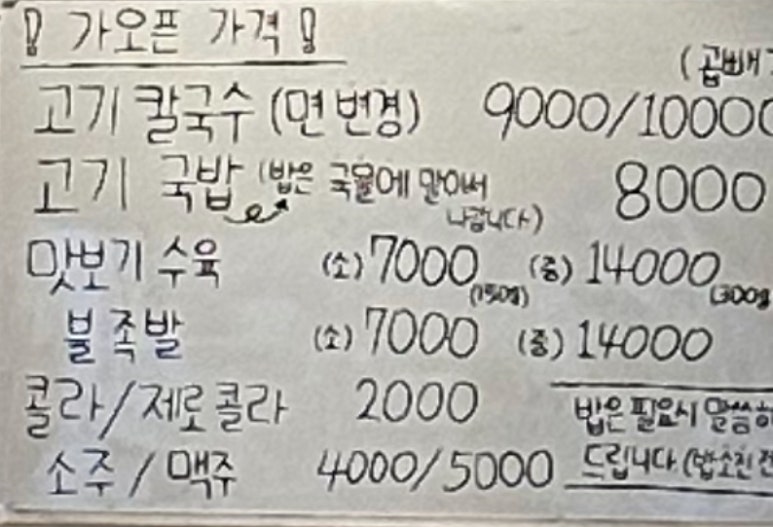 ! 가오픈 가격 !
(곱빼기
고기 칼국수 (면 변경) 9000/10000
고기 국밥 (밥은 국물에 말아서 나갑니다) 8000
맛보기 수육 (소) 7000 (150g) (중) 14000 (300g
불족발 (소) 7000 (중) 14000
콜라/제로콜라 2000
밥은 필요시 말씀하
소주 / 맥주 4000/5000
드립니다. (밥소진 전